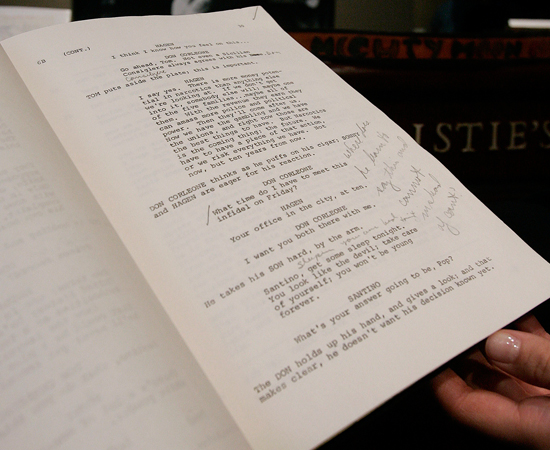 MIGHTY MOON
ISTIE'S
62 (CONT.)
HAGEN
I think I know how you feel on this...
DON CORLEONE
Go ahead, Tom. Not even a Sicilian
Consigliere always agrees with his
TOM puts aside the plate; this is important.
HAGEN
I say yes. There is more money poten-
tial in narcotics than anything else
we're looking at. If we don't get
into it, somebody else will; maybe one
of the five families...maybe all of
them. With the revenue they earn they
can amass more police and political
power. Then they'll come after us.
Now we have the gambling and we have
the unions, and right now those are
the best things to have. But narcotics
is the coming thing; the future. We
have to have a piece of that action,
or we risk everything we have. Not
now, but ten years from now.
DON CORLEONE thinks as he puffs on his cigar; Sonny
and HAGEN are eager for his reaction.
DON CORLEONE
What time do I have to meet this
infidel on Friday?
HAGEN
Your office in the city, at ten.
DON CORLEONE
I want you both there with me.
He takes his SON hard, by the arm.
Santino, get some sleep tonight,
you look like the devil; take care
of yourself; you won't be young
forever.
SANTINO
What's your answer going to be, Pop?
The DON holds up his hand, and gives a look; and that
makes clear, he doesn't want his decision known yet.